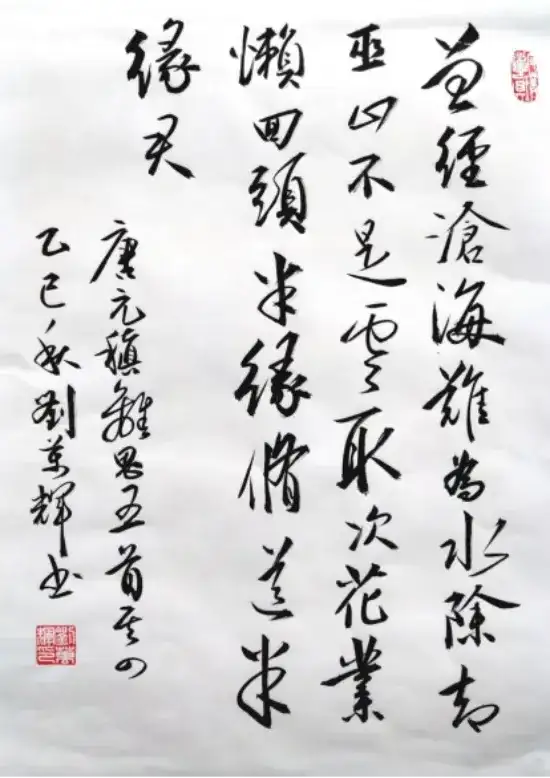 曾經滄海難為水除却
巫山不是雲取次花業
懶回頭半緣脩道半
緣君
唐元稹離思五首其四
乙巳秋劉萬輝書
劉萬輝印